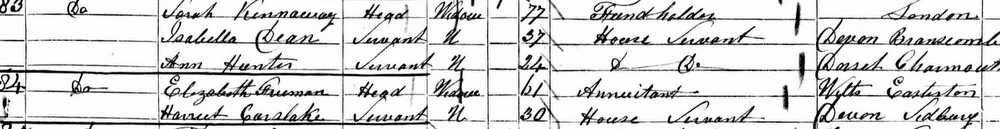 83 Do Sarah Kennaway Head Widow 77 Fundholder London
Isabella Dean Servant U 37 House Servant Devon Branscombe
Ann Hunter Servant U 24 D Do Dorset Charmouth
84 Do Elizabeth Freeman Head Widow 61 Annuitant Wilts Easterton
Harriet Carslake Servant U 30 House Servant Devon Sidbury